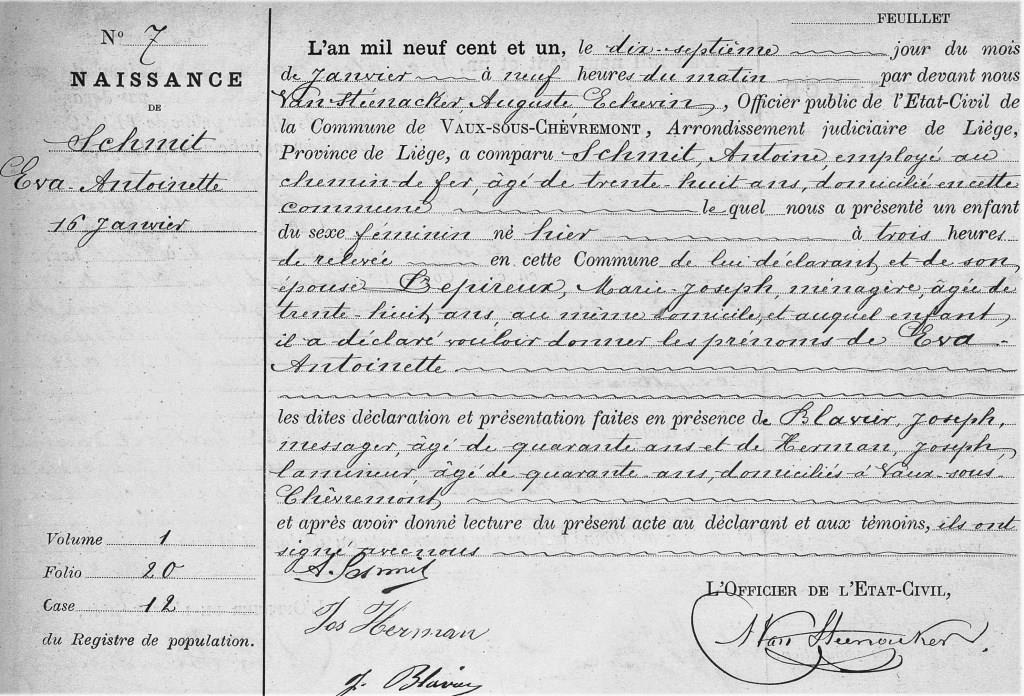 FEUILLET
N° 7
NAISSANCE
DE
Schmit
Eva Antoinette
16 Janvier
L'an mil neuf cent et un, le dix-septième jour du mois
de Janvier à neuf heures du matin par devant nous
Van Steenacker Auguste Echevin, Officier public de l'Etat-Civil de
la Commune de VAUX-SOUS-CHÈVREMONT, Arrondissement judiciaire de Liége,
Province de Liége, a comparu Schmit, Antoine, employé au
chemin de fer, âgé de trente-huit ans, domicilié en cette
commune le quel nous a présenté un enfant
du sexe féminin né hier à trois heures
de relevée en cette Commune de lui déclarant et de son
épouse Lepireux, Marie-Joseph, ménagère, âgée de
trente-huit ans, au même domicile, et auquel enfant
il a déclaré vouloir donner les prénoms de Eva
Antoinette
les dites déclaration et présentation faites en présence de Blavier, Joseph,
messager, âgé de quarante ans et de Herman, Joseph,
lamineur, âgé de quarante ans, domiciliés à Vaux-sous-
Chèvremont
et après avoir donné lecture du présent acte au déclarant et aux témoins, ils ont
signé avec nous
A. Schmit
Jos Herman
J. Blavier
L'OFFICIER DE L'ETAT-CIVIL,
A Van Steenacker
Volume 1
Folio 20
Case 12
du Registre de population.